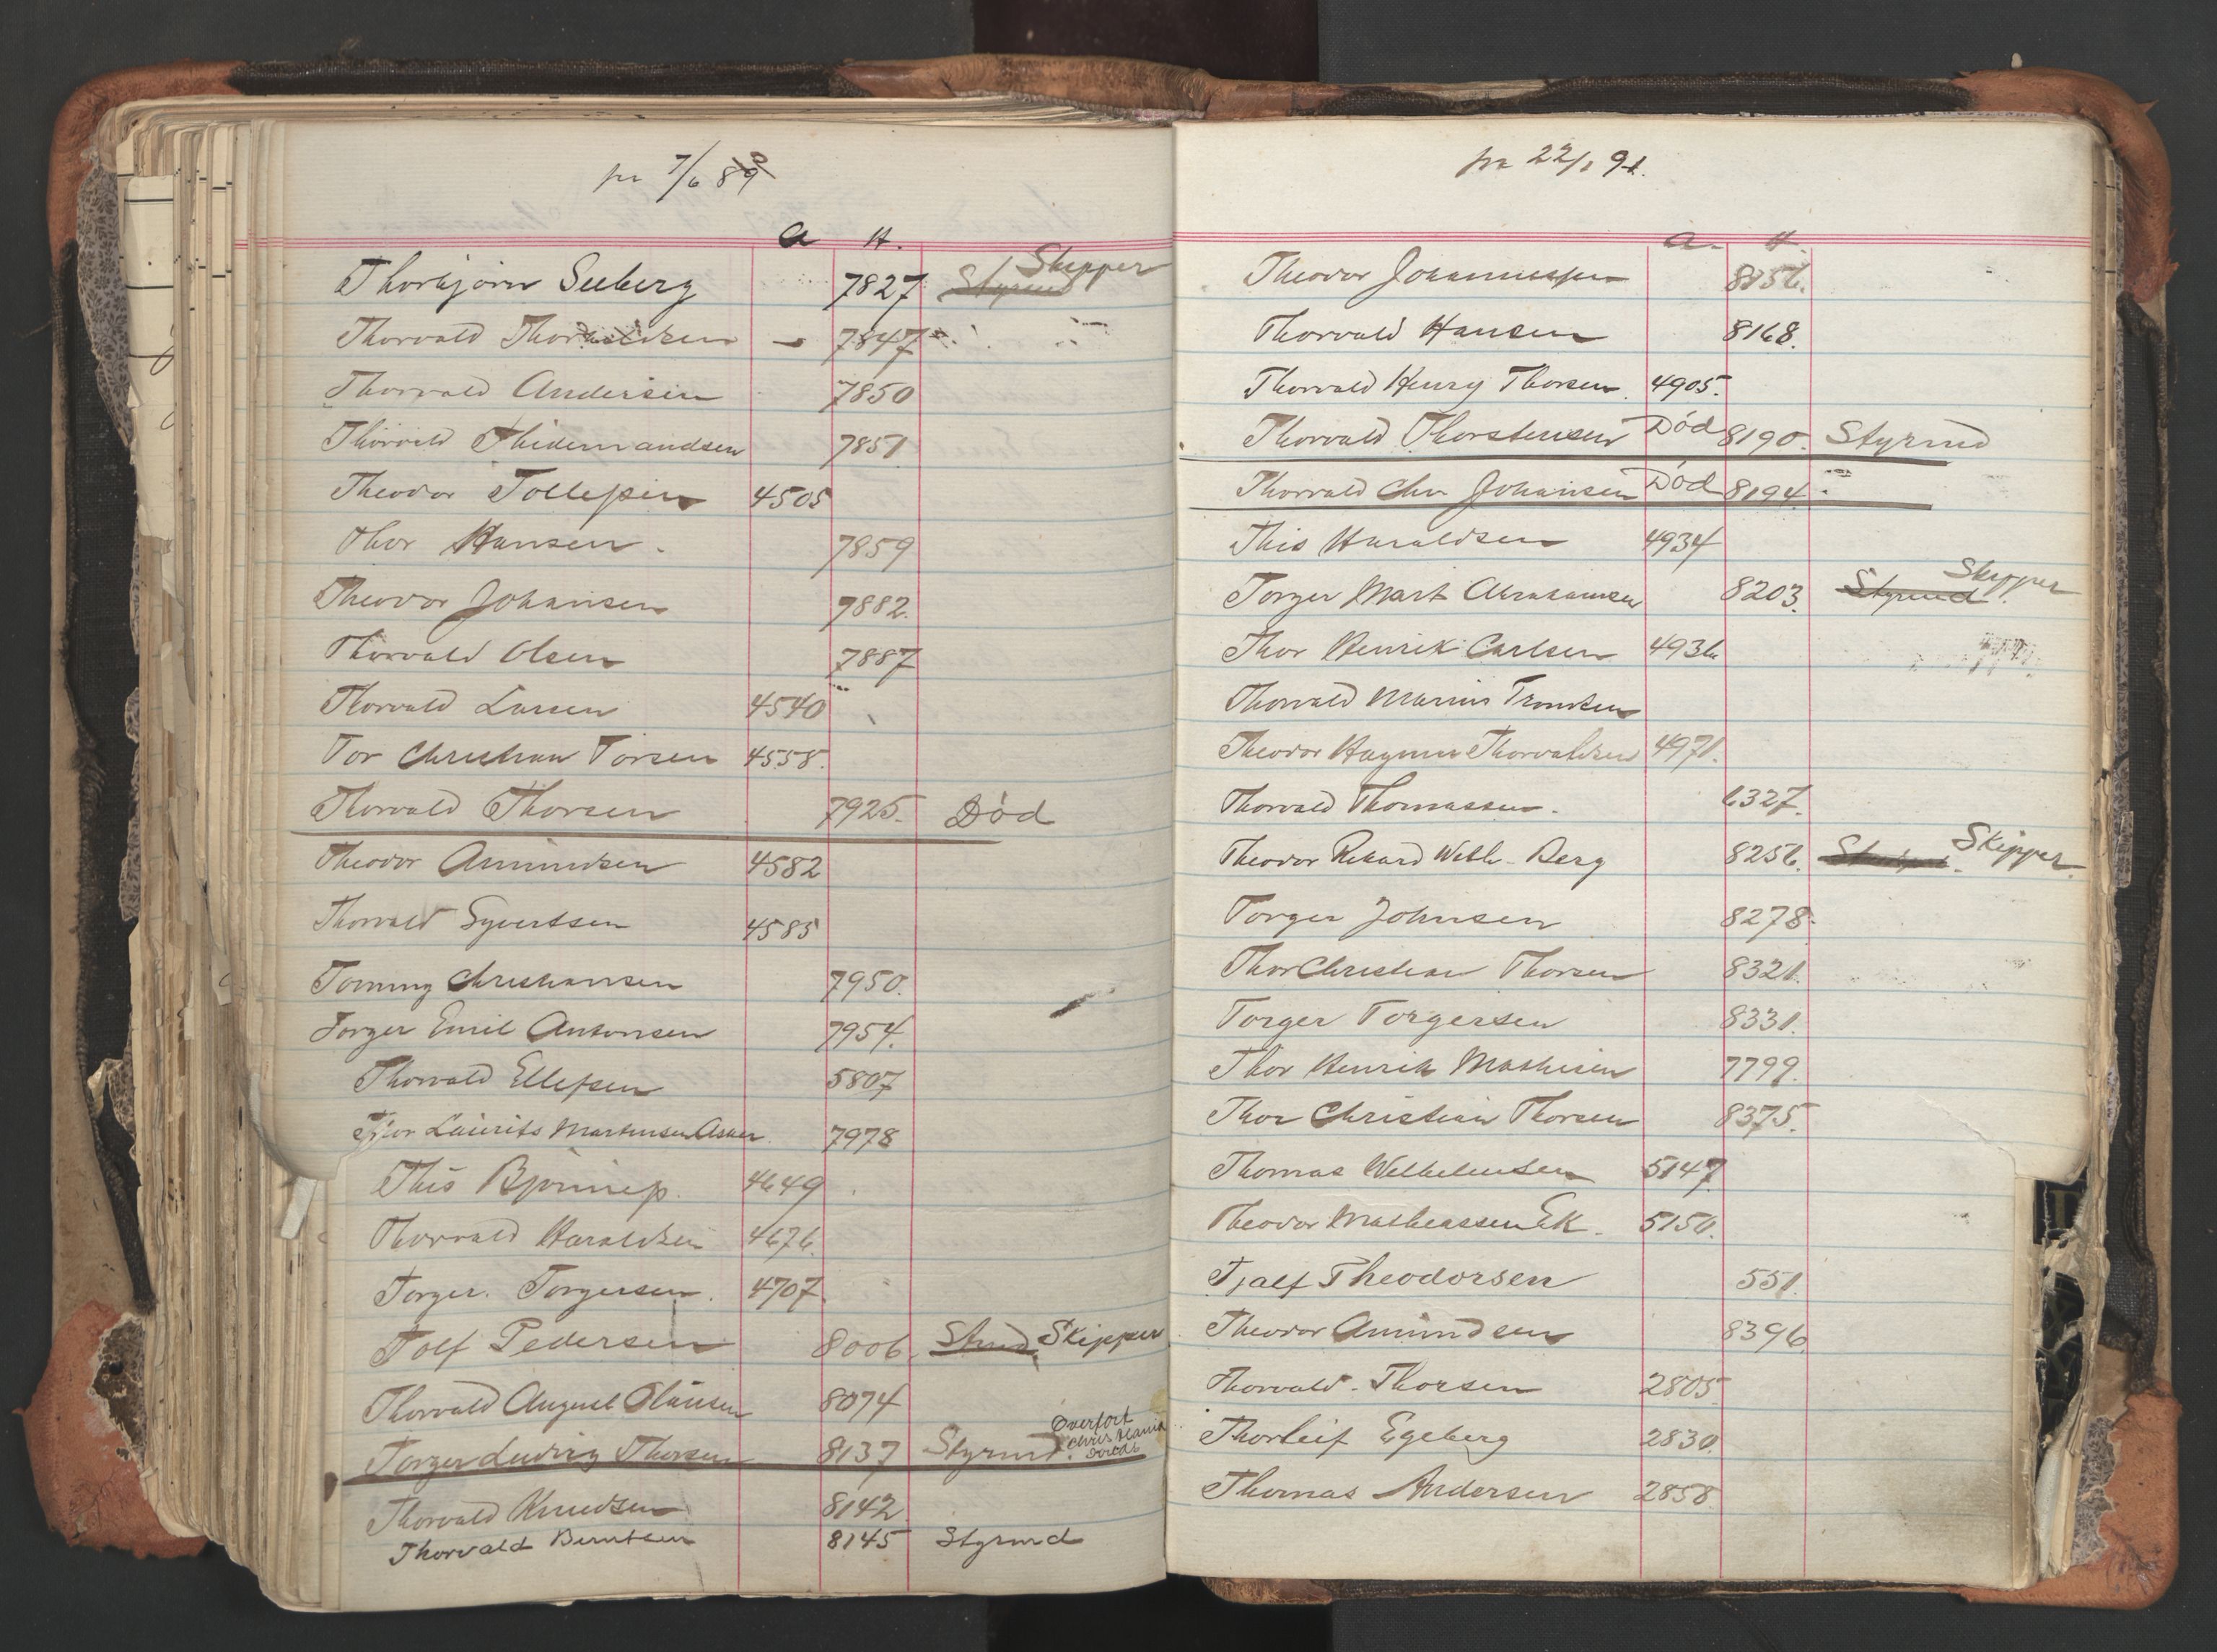 pr 7/6 89
a H.
Thorbjørn Seeberg 7827 Styrmd Skipper
Thorvald Thorvaldsen - 7847
Thorvald Andersen 7850
Thorvald Thidemandsen 7851
Theodor Tollefsen 4505
Thor Hansen. 7859
Theodor Johansen 7882.
Thorvald Olsen 7887
Thorvald Larsen 4540
Tor Christian Torsen 4558.
Thorvald Thorsen 7925. Død
Theodor Amundsen 4582
Thorvald Syvertsen 4585
Tommy Christiansen 7950.
Torger Emil Antonsen 7954.
Thorvald Ellefsen 5807
Thor Laurits Martinsen Asker 7978
This Bjønnes. 4649
Thorvald Haraldsen 4676.
Torger. Torgersen. 4707.
Tolf Pedersen 8006. Strmd. Skipper
Thorvald August Olausen 8074
Torger Ludvig Thorsen 8137 Styrmd. Overført Christiania
Thorvald Knudsen 8142
Thorvald Berntsen 8145 Styrmd
pr 22/1 91.
a. H
Theodor Johannessen 8156.
Thorvald Hansen 8168.
Thorvald Henry Thorsen. 4905.
Thorvald Thorstensen Død 8190. Styrmd
Thorvald Chr. Johansen Død 8194.
This Haraldsen 4934
Torger Mart Abrahamsen 8203. Styrmd. Skipper
Thor Henrik Carlsen 4936
Thorvald Marius Tronsen
Theodor Hagman Thorvaldsen 4971.
Thorvald Thomassen. 6327.
Theodor Rikard Wilh. Berg 8256. Skipper.
Torger Johnsen 8278.
Thor Christian Thorsen 8321.
Torger Torgersen 8331.
Thor Henrik Mathisen 7799.
Thor Christian Thorsen 8375.
Thomas Wilhelmsen 5147.
Theodor Matheassen Ek. 5150.
Tjalf Theodorsen 551.
Theodor Amundsen 8396.
Thorvald. Thorsen 2805
Thorleif Egeberg 2830.
Thomas Andersen 2858